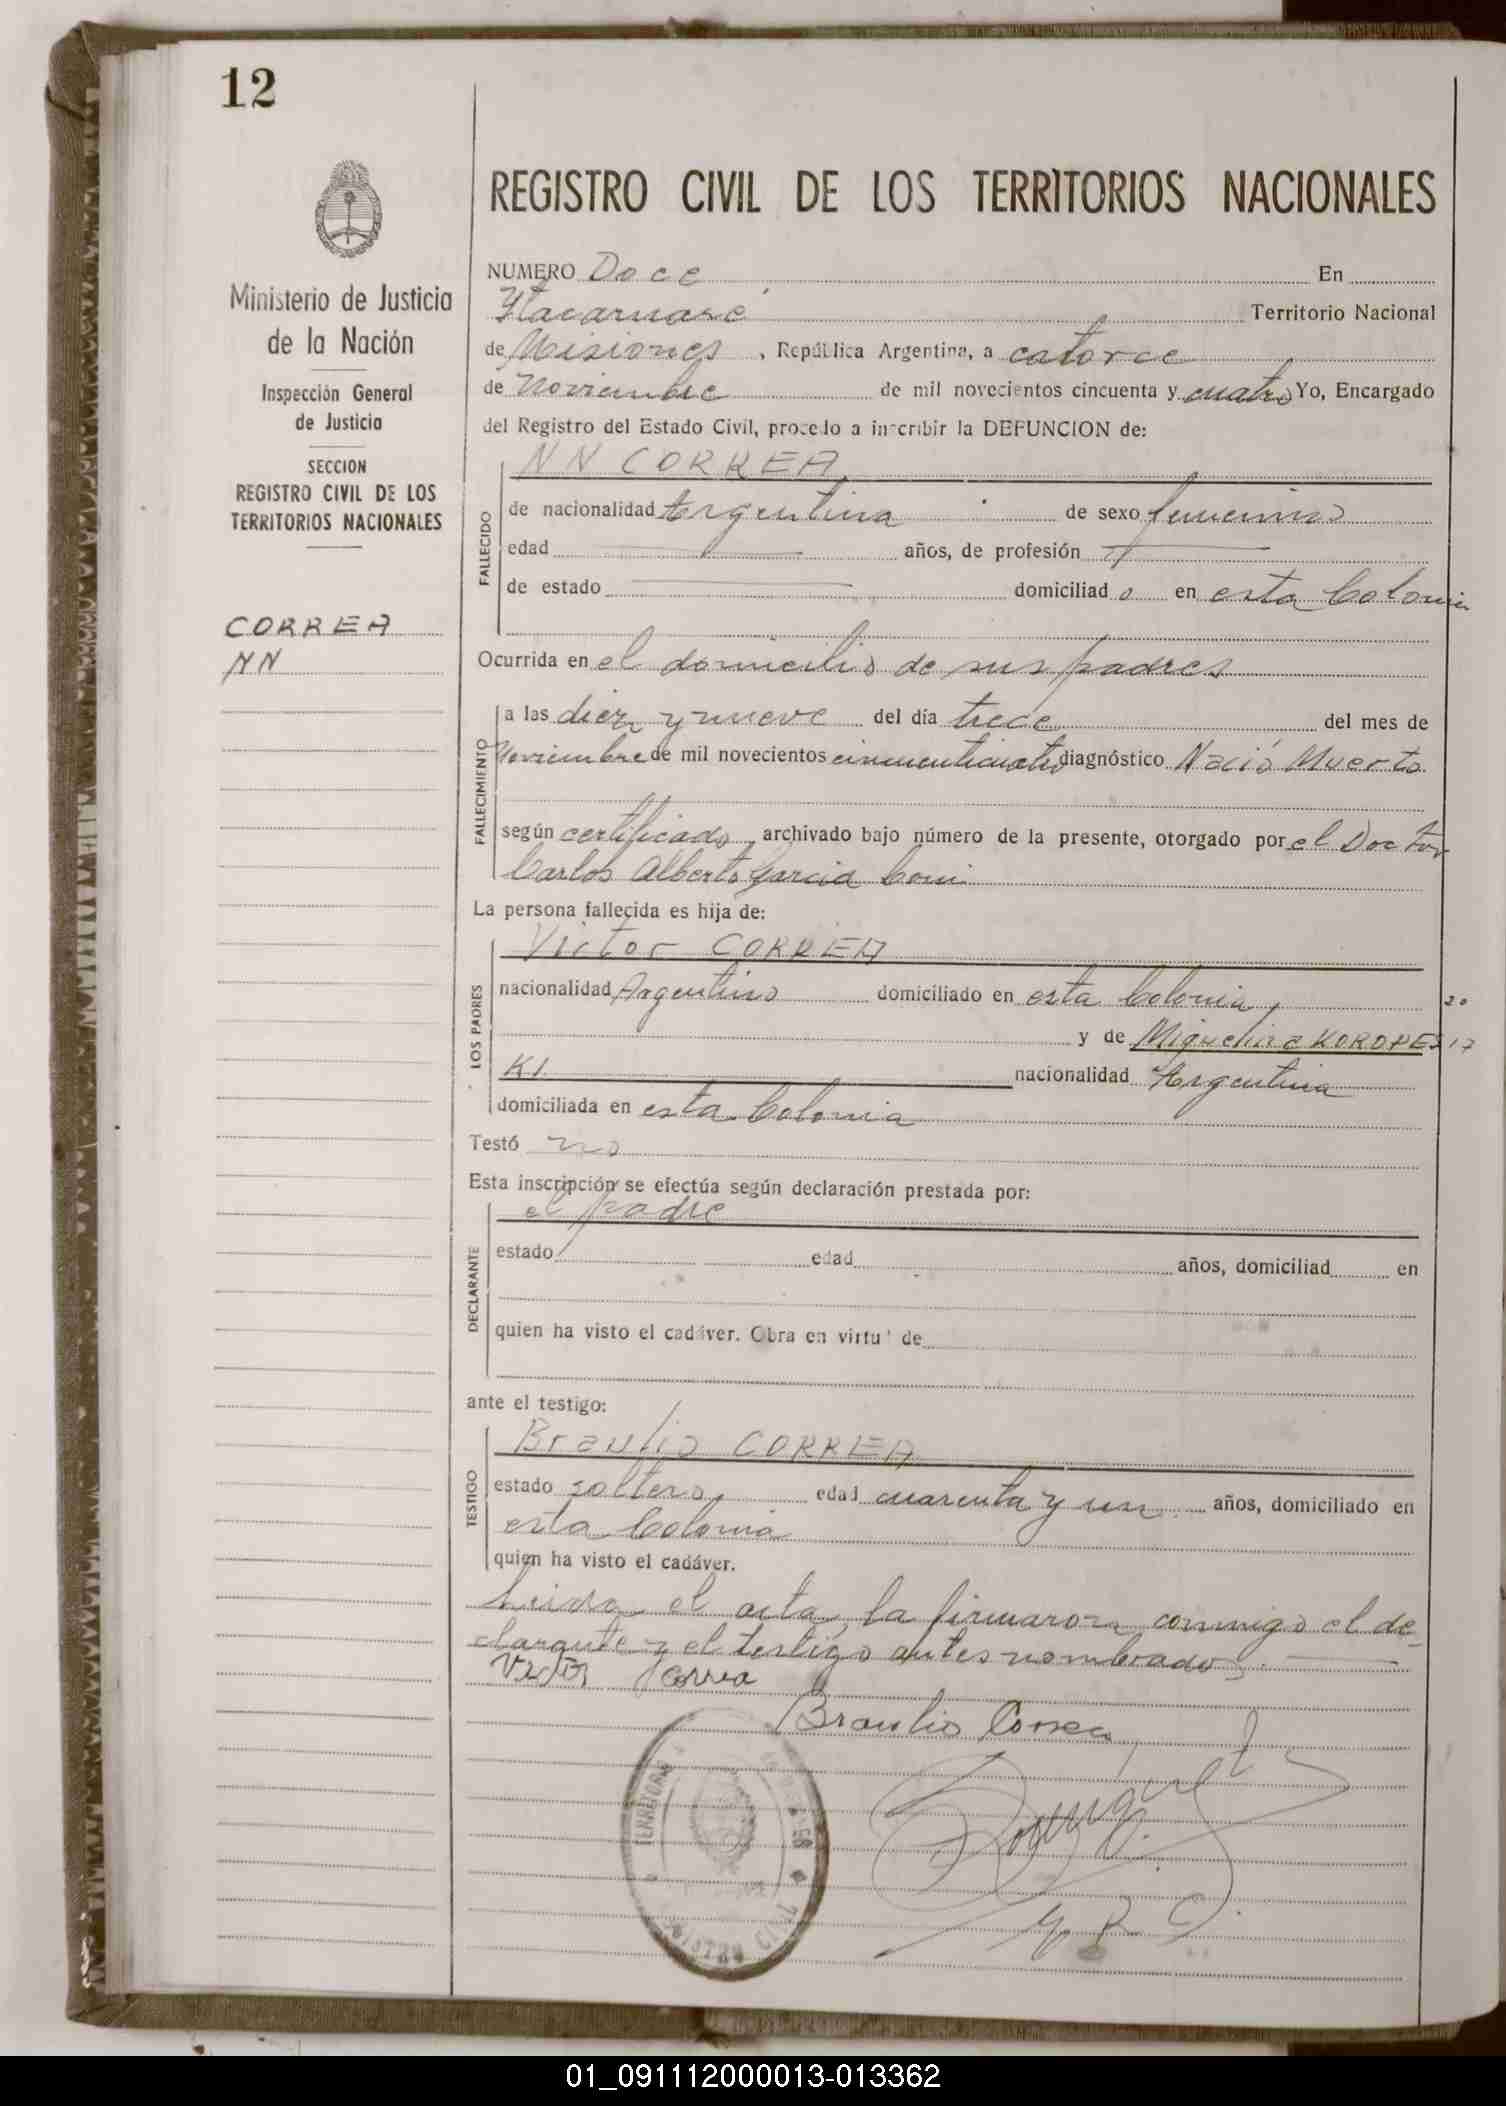 12
REGISTRO CIVIL DE LOS TERRITORIOS NACIONALES
Ministerio de Justicia
de la Nación
Inspección General
de Justicia
SECCION
REGISTRO CIVIL DE LOS
TERRITORIOS NACIONALES
CORREA
NN
NUMERO Doce En
Itacaruaré Territorio Nacional
de Misiones, República Argentina, a catorce
de Noviembre de mil novecientos cincuenta y cuatro Yo, Encargado
del Registro del Estado Civil, procedo a inscribir la DEFUNCION de:
NN CORREA
FALLECIDO
de nacionalidad Argentina de sexo femenino
edad años, de profesión
de estado domiciliado en esta Colonia
Ocurrida en el domicilio de sus padres
FALLECIMIENTO
a las diez y nueve del día trece del mes de
Noviembre de mil novecientos cincuenticuatro diagnóstico Nació Muerta
según certificado archivado bajo número de la presente, otorgado por el Doctor
Carlos Alberto Garcia
La persona fallecida es hija de:
LOS PADRES
Victor CORREA
nacionalidad Argentino domiciliado en esta Colonia, 20
y de Miguelina KOROPES 17
KI nacionalidad Argentina
domiciliada en esta Colonia
Testó no
Esta inscripción se efectúa según declaración prestada por:
DECLARANTE
el padre
estado edad años, domiciliad en
quien ha visto el cadáver. Obra en virtu' de
ante el testigo:
TESTIGO
Braulio CORREA
estado soltero, edad cuarenta y un años, domiciliado en
esta Colonia
quien ha visto el cadáver.
Leida el acta, la firmaron conmigo el de-
clarante y el testigo antes nombrados.
Victor Correa
Braulio Correa
REGISTRO CIVIL
01_091112000013-013362